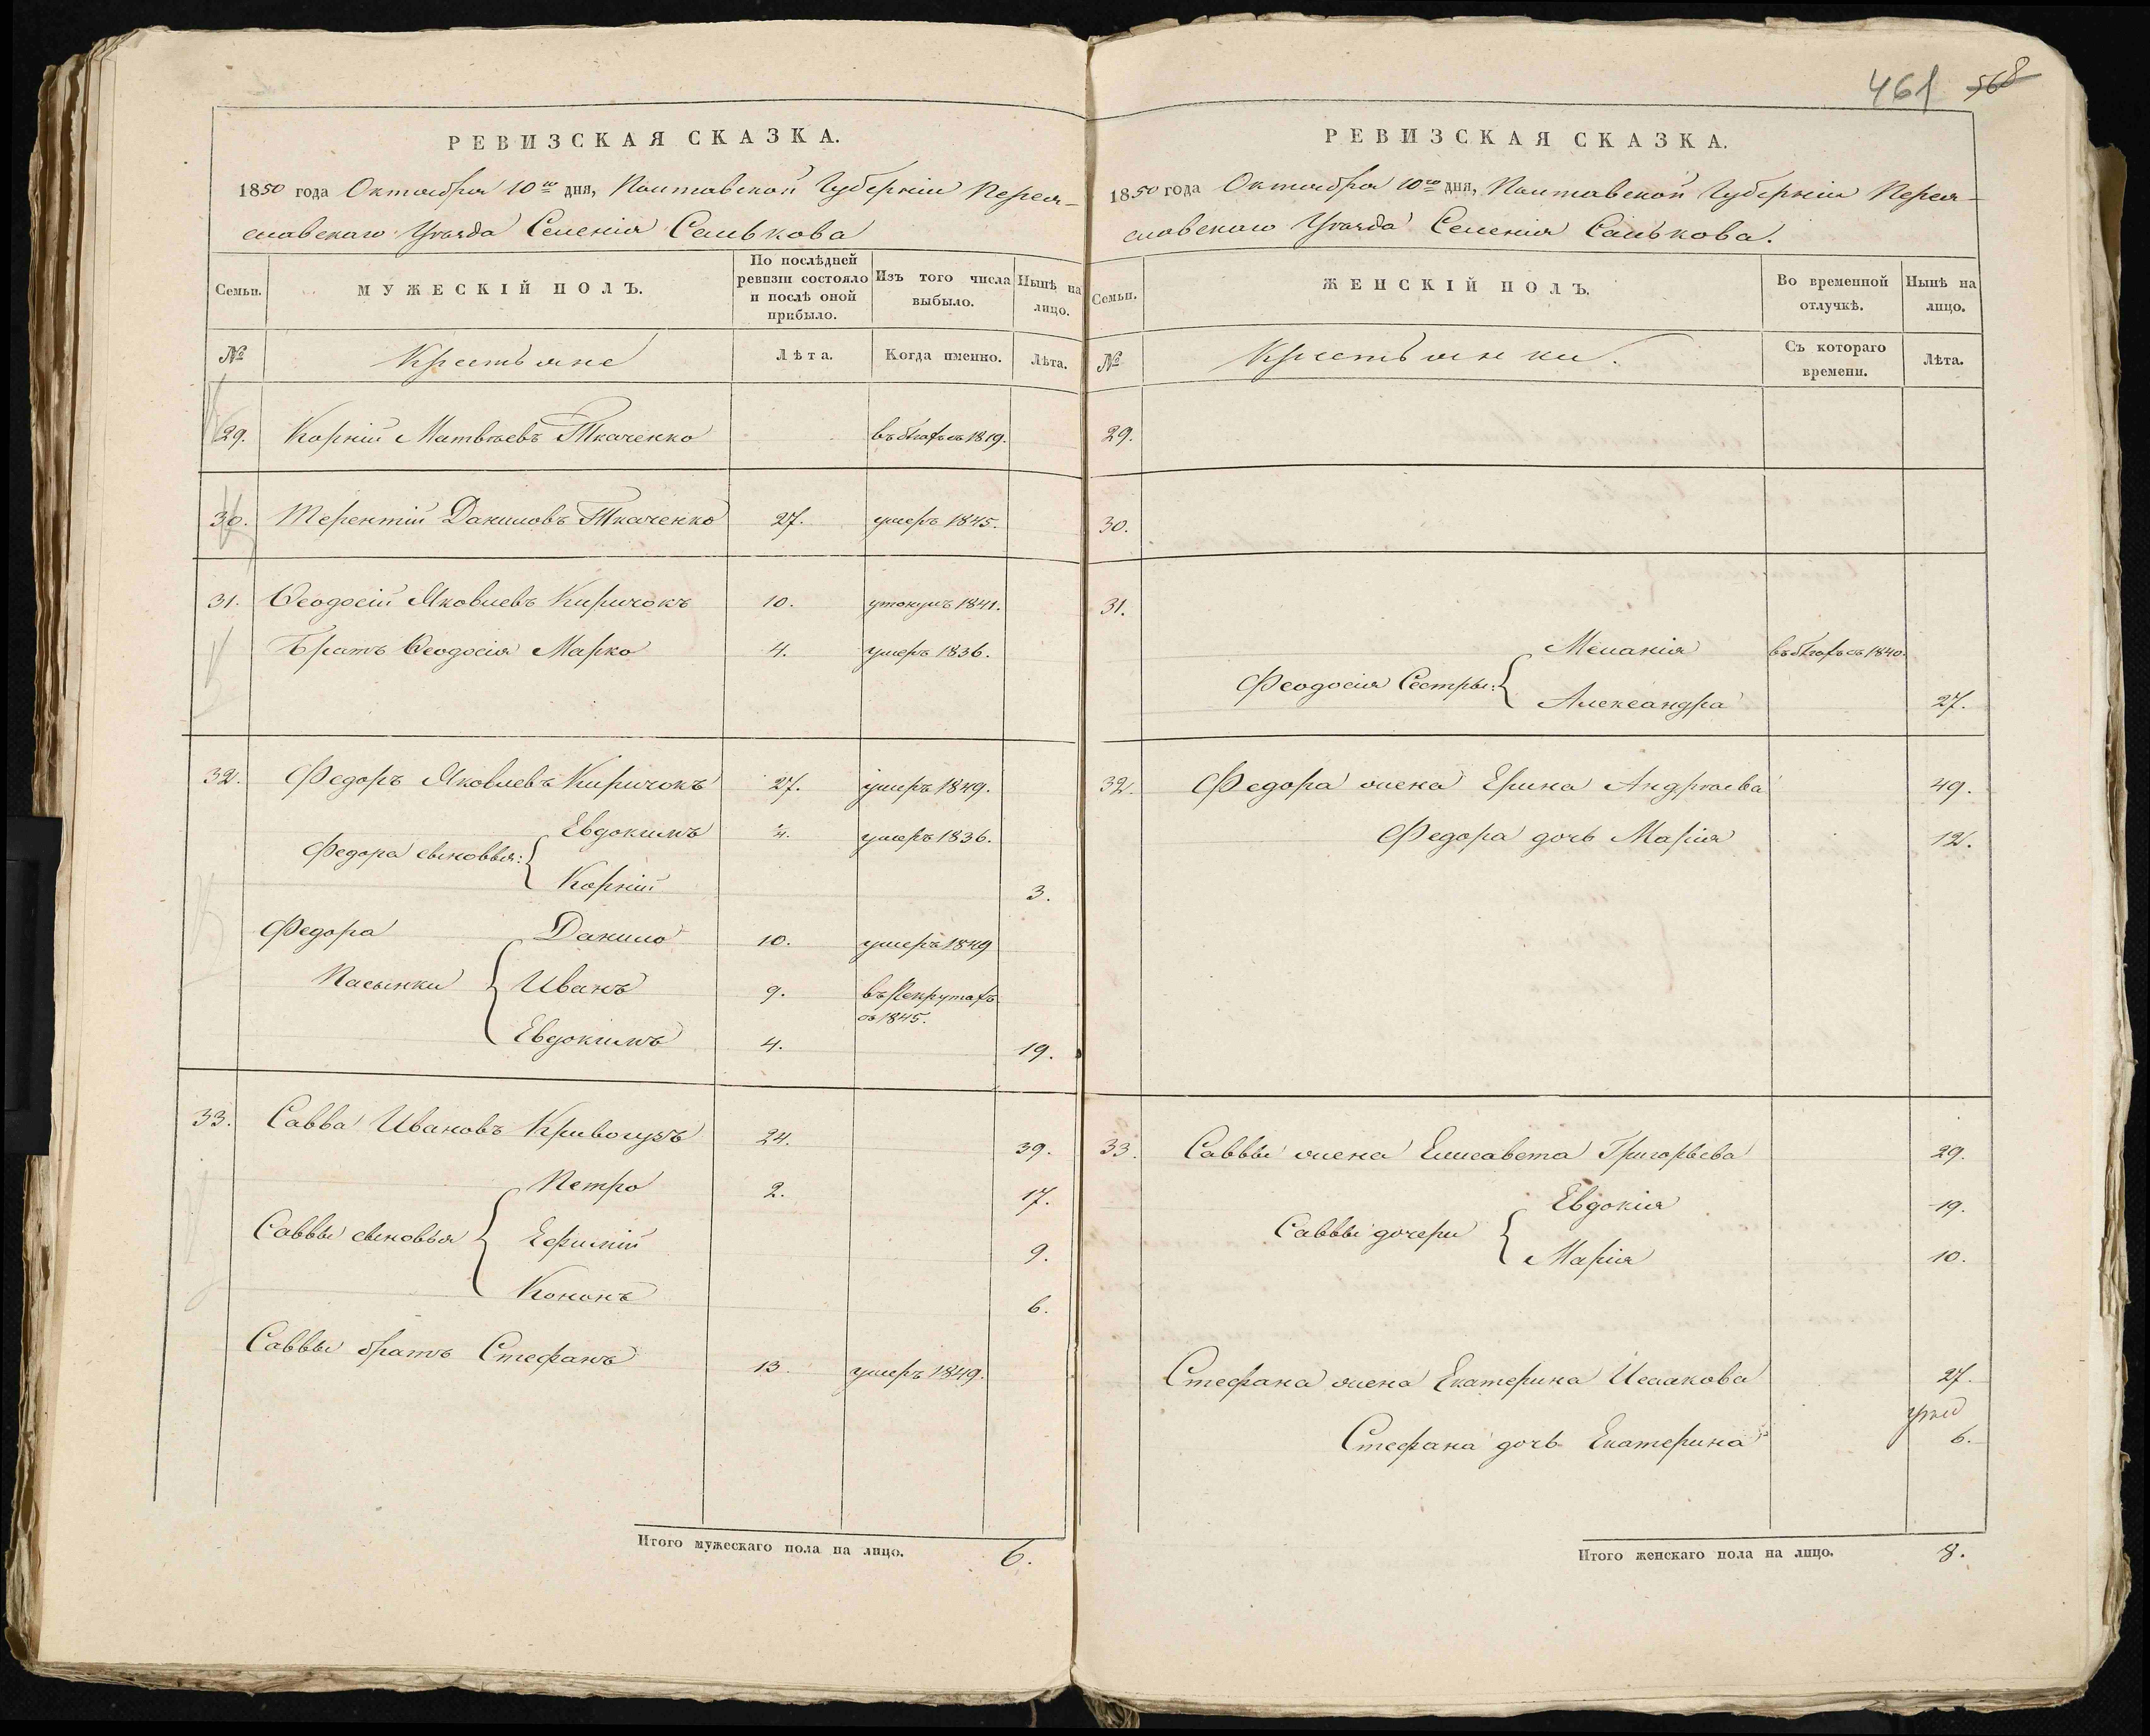 461 568
РЕВИЗСКАЯ СКАЗКА.
1850 года Октября 10го дня, Полтавской Губерніи Перея-
славскаго Уѣзда Селенія Салькова
Семьи.
МУЖЕСКІЙ ПОЛЪ.
По послѣдней ревизіи состояло и послѣ оной прибыло.
Изъ того числа выбыло.
Нынѣ на лицо.
№
Крестьяне
Лѣта.
Когда именно.
Лѣта.
29. Корній Матвѣевъ Ткаченко въ бѣгахъ съ 1819.
30. Терентій Даниловъ Ткаченко 27. умеръ 1845.
31. Ѳеодосій Яковлевъ Киричокъ 10. утонулъ 1841.
Братъ Ѳеодосія Марко 4. умеръ 1836.
32. Федоръ Яковлевъ Киричокъ 27. умеръ 1849.
Евдокимъ умеръ 1836.
Федора сыновья:
Корній 3.
Федора Данило 10. умеръ 1849
Пасынки Иванъ 9. въ Рекрутахъ
съ 1845.
Евдокимъ 4. 19.
33. Савва Ивановъ Кривогузъ 24. 39.
Петро 2. 17.
Саввы сыновья Ефимій 9.
Кононъ 6.
Саввы братъ Стефанъ 13. умеръ 1849.
Итого мужескаго пола на лицо. 6.
РЕВИЗСКАЯ СКАЗКА.
1850 года Октября 10го дня, Полтавской Губерніи Перея-
славскаго Уѣзда Селенія Салькова.
Семьи.
ЖЕНСКІЙ ПОЛЪ.
Во временной отлучкѣ.
Нынѣ на лицо.
№
Крестьянки.
Съ котораго времени.
Лѣта.
29.
30.
31.
Меланія въ бѣгахъ съ 1840.
Феодосія Сестры:
Александра 27.
32. Федора жена Ерина Андрѣева 49.
Федора дочь Марія 12.
33. Саввы жена Елисавета Григорьева 29.
Евдокія 19.
Саввы дочери
Марія 10.
Стефана жена Екатерина Исаакова 27.
Стефана дочь Екатерина 6.
Итого женскаго пола на лицо. 8.